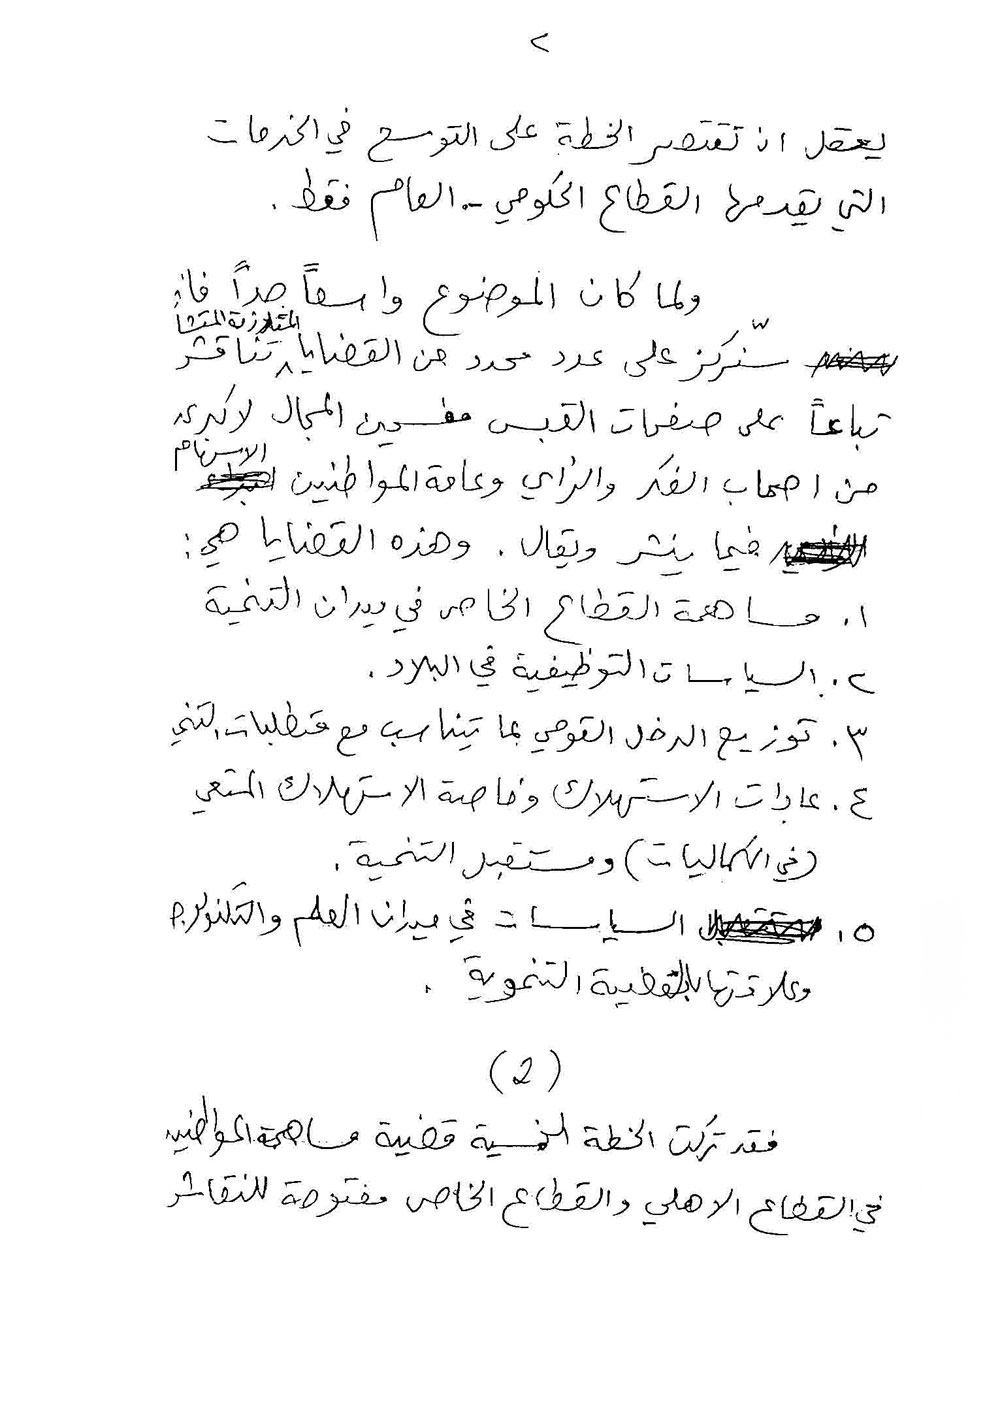 ٢
يعقل ان تقتصر الخطة على التوسع في الخدمات
التي يقدمها القطاع الحكومي - العام فقط .
ولما كان الموضوع واسعاً جداً فان
سنركز على عدد محدد من القضايا المتلازمة تناقش
تباعاً على صفحات القبس مفسحين المجال لاكبرى
من اصحاب الفكر والرأي وعامة المواطنين الاسهام
فيما ينشر ويقال . وهذه القضايا هي :
١. مساهمة القطاع الخاص في ميدان التنمية
٢. السياسات التوظيفية في البلاد .
٣. توزيع الدخل القومي بما يتناسب مع متطلبات التني
٤. عادات الاستهلاك وخاصة الاستهلاك المتعي
(في الكماليات) ومستقبل التنمية .
٥. السياسات في ميدان العلم والتكنولوج
وعلاقتها بالقضية التنموية .
(2)
فقد تركت الخطة الخمسية قضية مساهمة المواطنين
في القطاع الاهلي والقطاع الخاص مفتوحة للنقاش